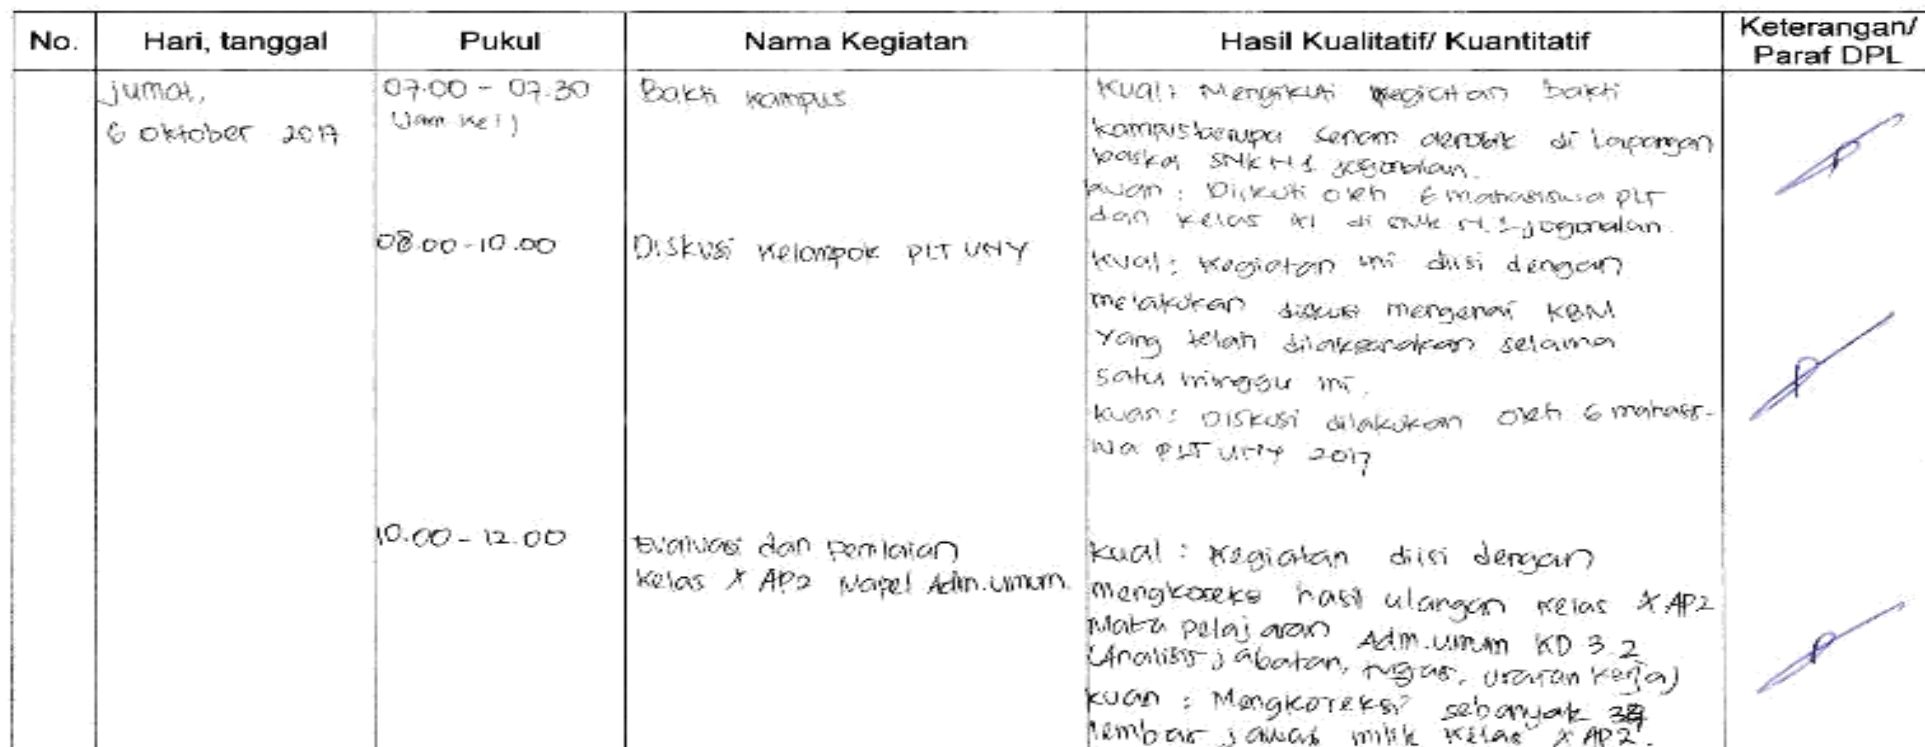 No. Hari, tanggal Pukul Nama Kegiatan Hasil Kualitatif/ Kuantitatif Keterangan/
Paraf DPL
jumat,
6 oktober 2017
07.00 - 07.30
(Jam ke 1)
Bakti kampus
Kual: Mengikuti kegiatan bakti
kampus berupa senam aerobik di lapangan
basket SMK N 1 jogonalan.
kuan: Diikuti oleh 6 mahasiswa PLT
dan kelas XI di SMK N 1 jogonalan.
08.00-10.00
Diskusi Kelompok PLT UNY
kual: Kegiatan ini diisi dengan
melakukan diskusi mengenai KBM
Yang telah dilaksanakan selama
satu minggu ini.
kuan: Diskusi dilakukan oleh 6 mahasis-
wa PLT UNY 2017
10.00-12.00
Evaluasi dan Penilaian
kelas X AP2 Mapel Adm.umum.
kual: Kegiatan diisi dengan
mengkoreksi hasil ulangan kelas X AP2
Mata pelajaran Adm.umum KD 3.2
(Analisis jabatan, tugas, uraian kerja)
kuan: Mengkoreksi sebanyak
lembar jawab milik kelas X AP2.